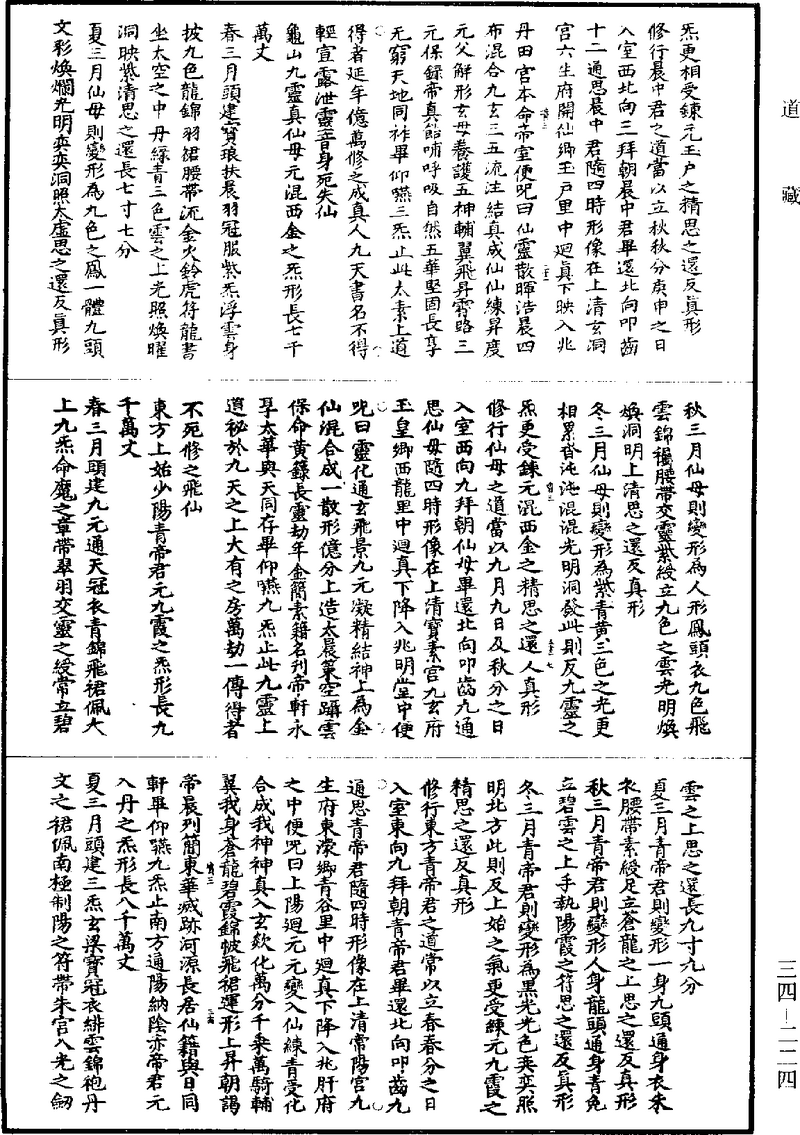 道藏
炁更相受鍊元玉户之精思之還反真形
修行晨中君之道當以立秋秋分庚申之日
入室西北向三拜朝晨中君畢還北向叩齒
十二通思晨中君隨四時形像在上清玄洞
宫六生府開仙鄉玉户里中迴真下映入兆
丹田宫本命帝室便咒曰仙靈散暉浩晨四
布混合九玄三五流注結真成仙仙練昇度
元父解形玄母養護五神輔翼飛昇霄路三
元保録帝真飴哺呼吸自然五華堅固長享
无窮天地同祚畢仰嚥三炁止此太素上道
得者延年億萬修之成真人九天書名不得
輕宣露泄靈音身死失仙
龜山九靈真仙母元混西金之炁形長七千
萬丈
春三月頭建寶琅扶晨羽冠服紫炁浮雲身
披九色龍錦羽裙腰帶流金火鈴虎符龍書
坐太空之中丹緑青三色雲之上光照煥曜
洞映紫清思之還長七寸七分
夏三月仙母則變形為九色之鳳一體九頭
文彩煥爛光明奕奕洞照太虚思之還反真形
秋三月仙母則變形為人形鳳頭衣九色飛
雲錦襡腰帶交靈紫綬立九色之雲光明煥
煥洞明上清思之還反真形
冬三月仙母則變形為紫青黄三色之光更
相累沓沌沌混混光明洞發此則反九靈之
炁更受鍊元混西金之精思之還人真形
修行仙母之道當以九月九日及秋分之日
入室西向九拜朝仙母畢還北向叩齒九通
思仙母隨四時形像在上清寶素宫九玄府
玉皇鄉西龍里中迴真下降入兆明堂中便
咒曰靈化通玄飛景九元凝精結神上為金
仙混合成一散形億分上造太晨策空躡雲
保命黄籙長靈劫年金簡素籍名刋帝軒永
享太華與天同存畢仰嚥九炁止此九靈上
道秘於九天之上大有之房萬劫一傳得者
不死修之飛仙
東方上始少陽青帝君元九霞之炁形長九
千萬丈
春三月頭建九元通天冠衣青錦飛裙佩大
上九炁命魔之章帶翠羽交靈之綬常立碧
雲之上思之還長九寸九分
夏三月青帝君則變形一身九頭通身衣朱
衣腰帶素綬足立蒼龍之上思之還反真形
秋三月青帝君則變形人身龍頭通身青色
立碧雲之上手執陽霞之符思之還反真形
冬三月青帝君則變形為黑光光色奕奕照
明北方此則反上始之氣更受練元九霞之
精思之還反真形
修行東方青帝君之道常以立春春分之日
入室東向九拜朝青帝君畢還北向叩齒九
通思青帝君隨四時形像在上清常陽宫九
生府東濛鄉青谷里中迴真下降入兆肝府
之中便咒曰上陽迴元元變入仙練青受化
合成我神神真入玄欻化萬分千乘萬騎輔
翼我身蒼龍碧霞錦帔飛裙運形上昇朝謁
帝晨列簡東華滅跡河源長居仙籍與日同
軒畢仰嚥九炁止南方通陽納陰赤帝君元
入丹之炁形長八千萬丈
夏三月頭建三炁玄梁寶冠衣緋雲錦袍丹
文之裙佩南極制陽之符帶朱宫入光之劒
三四－二二四